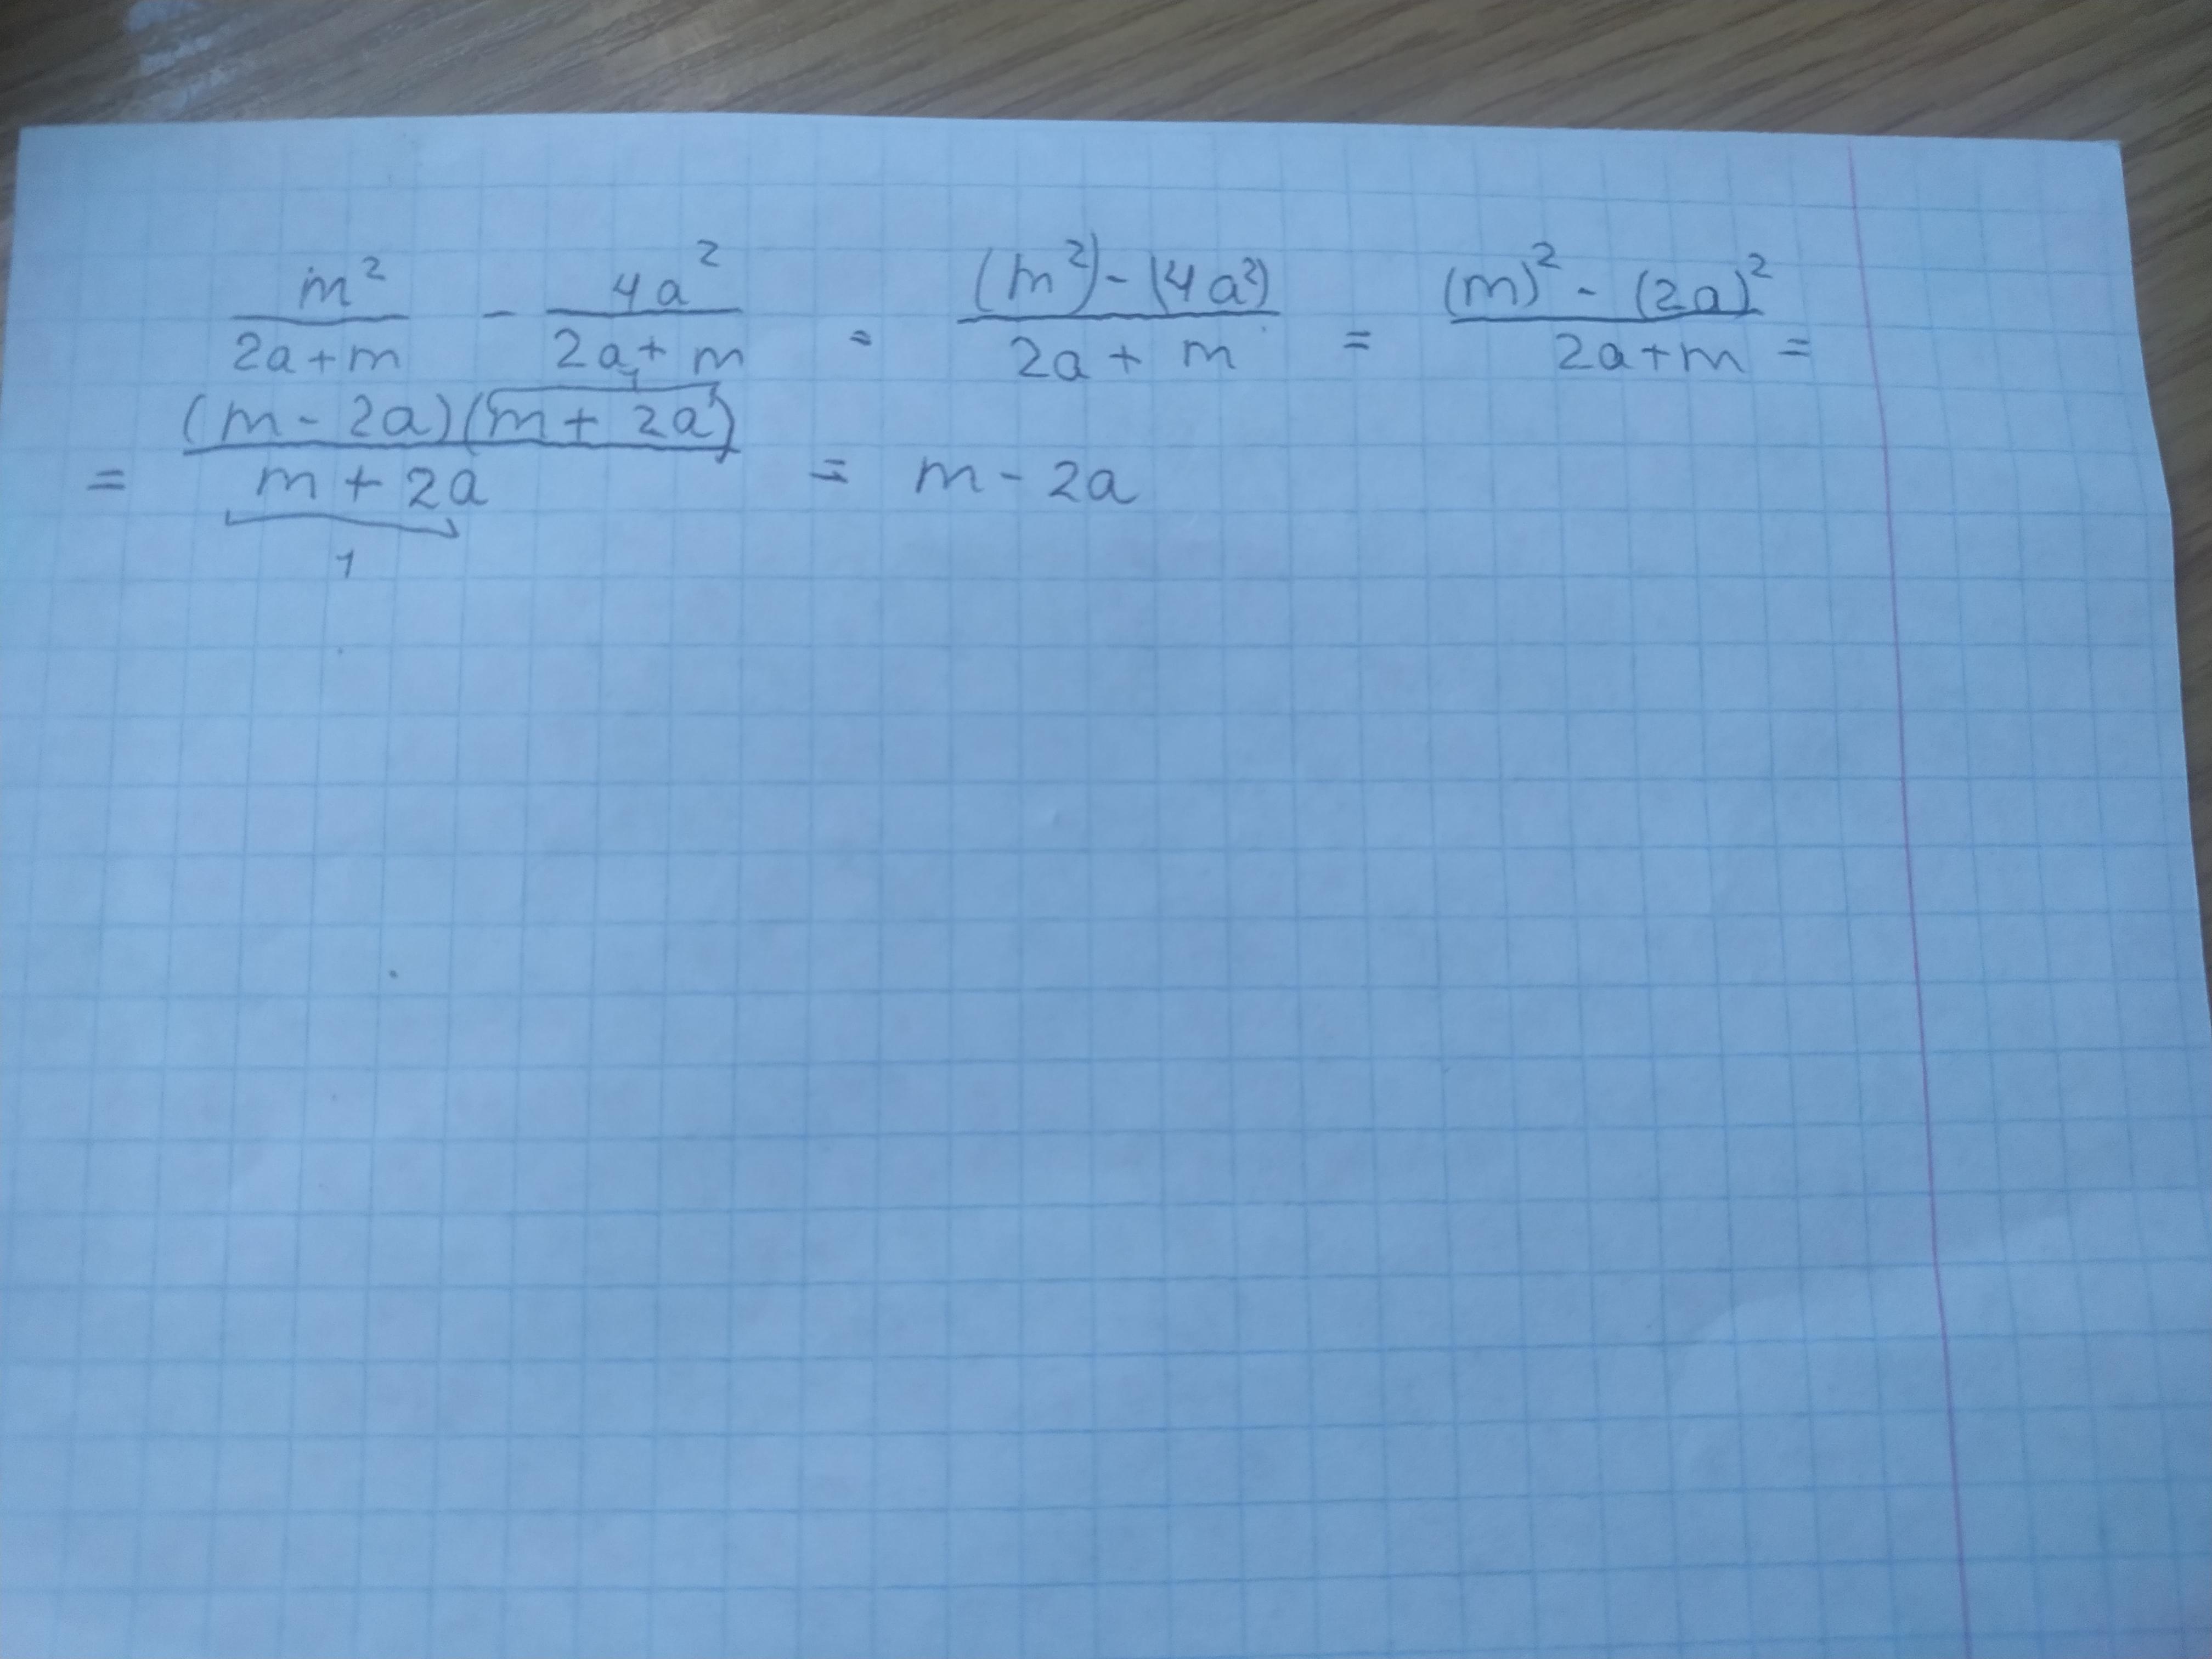 m²/(2a+m) - 4a²/(2a+m) = ((m²)-(4a²))/(2a+m) = ((m)²-(2a)²)/(2a+m) =
= ((m-2a)(m+2a) 1)/(m+2a) = m-2a
1